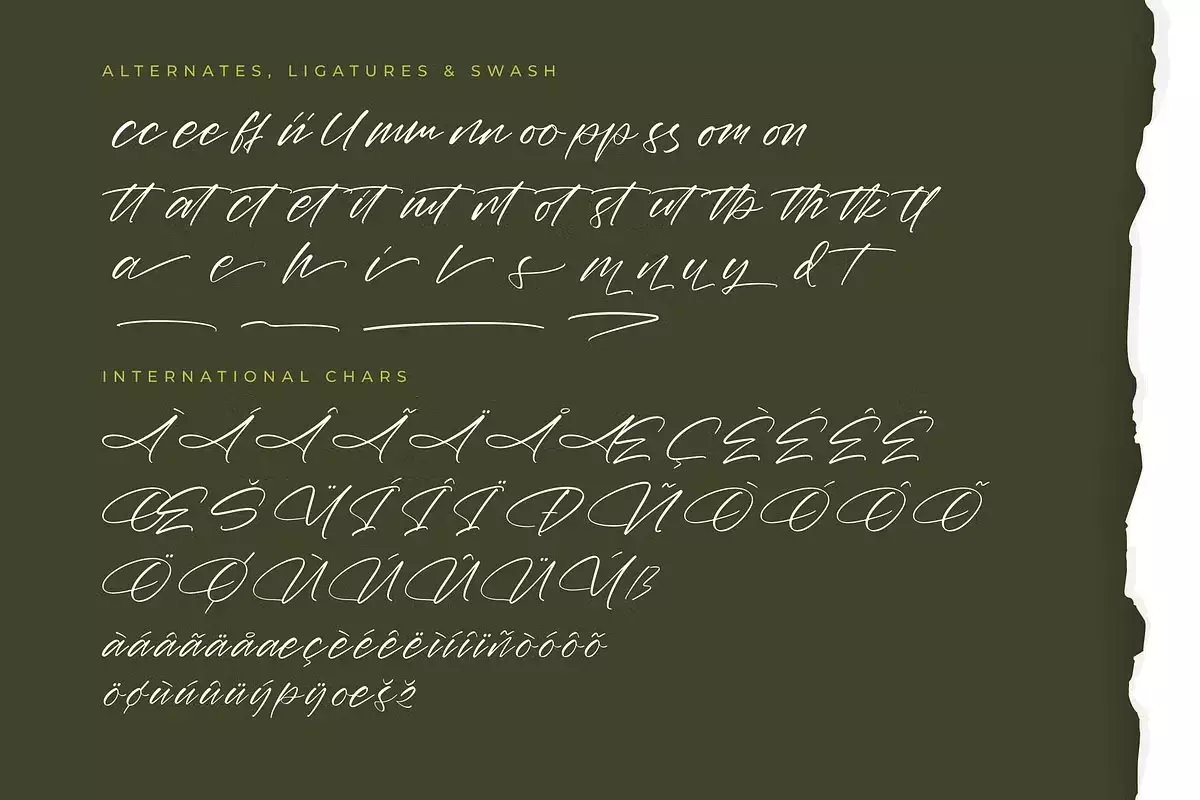 ALTERNATES, LIGATURES & SWASH
cc ee ff ii ll mm nn oo pp ss om on
tt at ct et it nt rt ot st ut tb th tk tl
a e h i l s m n u y d T
INTERNATIONAL CHARS
À Á Â Ã Ä Å Æ Ç È É Ê Ë
Œ Š Ÿ Í Î Ï Ð Ñ Ò Ó Ô Õ
Ö Ø Ù Ú Û Ü Ý ß
àáâãäåæçèéêëìíîïñòóôõ
öøùúûüýþÿœšž